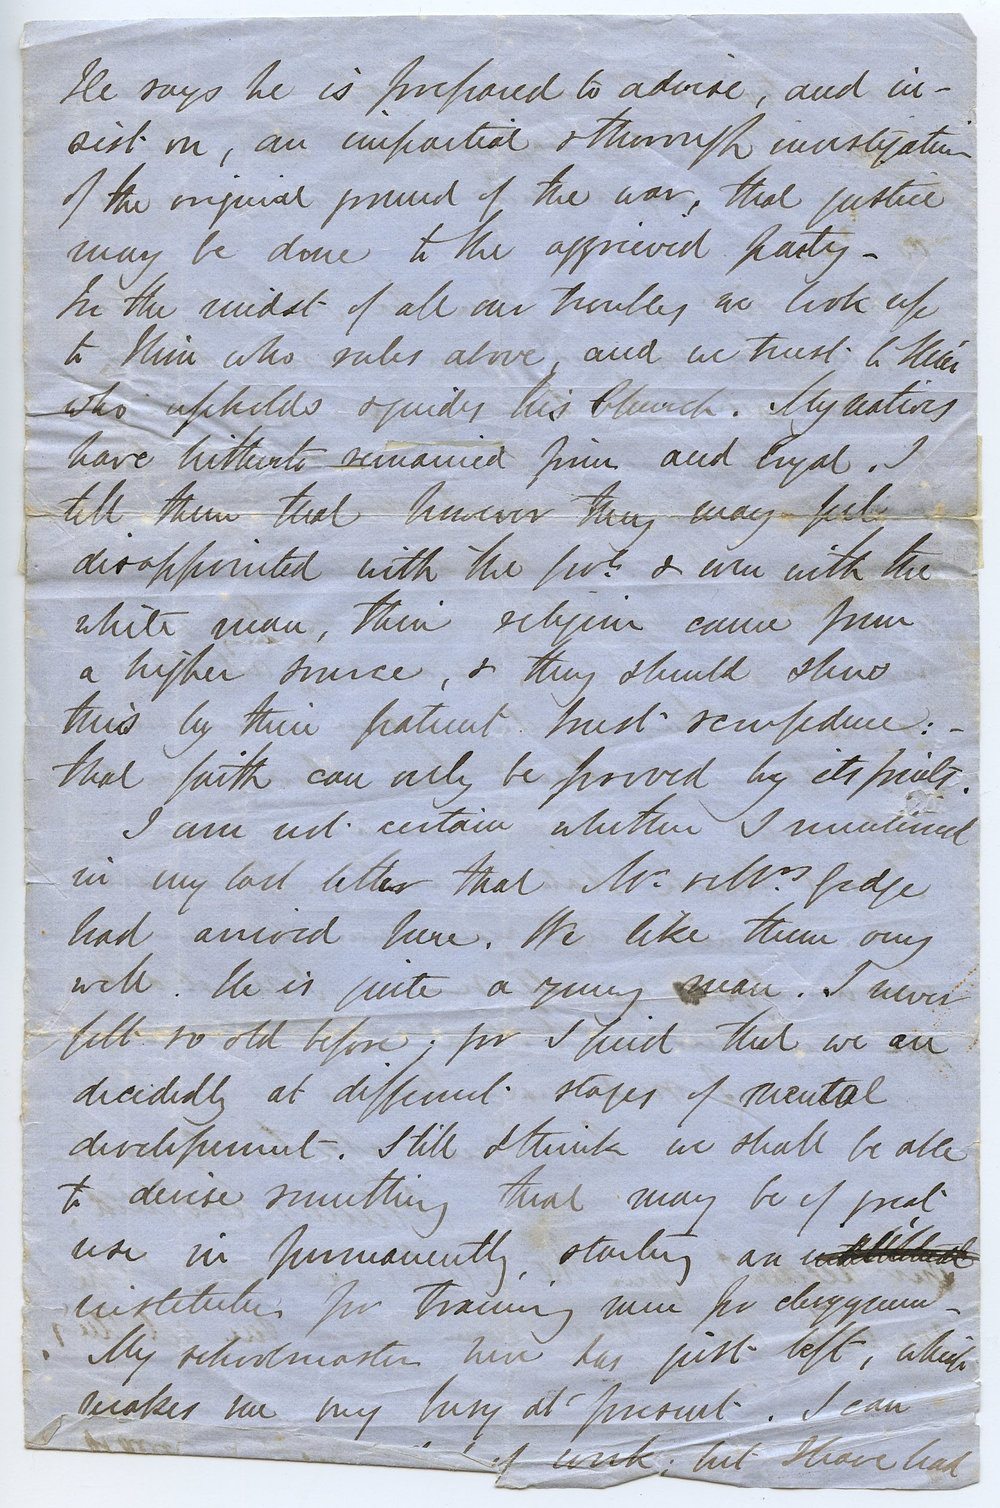 He says he is prepared to advise, and in-
sist on, an impartial & thorough investigation
of the original ground of the war, that justice
may be done to the aggrieved party -
In the midst of all our troubles we look up
to Him who rules above, and we trust to Him
who upholds & guides his Church. My natives
have hitherto remained firm and loyal. I
tell them that however they may feel
disappointed with the Govt. & even with the
white man, their religion came from
a higher source, & they should show
this by their patient trust & confidence: -
that faith can only be proved by its fruits.
I am not certain whether I mentioned
in my last letter that Mr. & Mrs
had arrived here. We like them very
well. He is quite a young man. I never
felt so old before; for I find that we are
decidedly at different stages of mental
development. Still I think we shall be able
to devise something that may be of great
use in permanently starting an
institution for training men for clergymen -
My schoolmaster here has just left, which
makes me very busy at present. I can
of work; but I have had